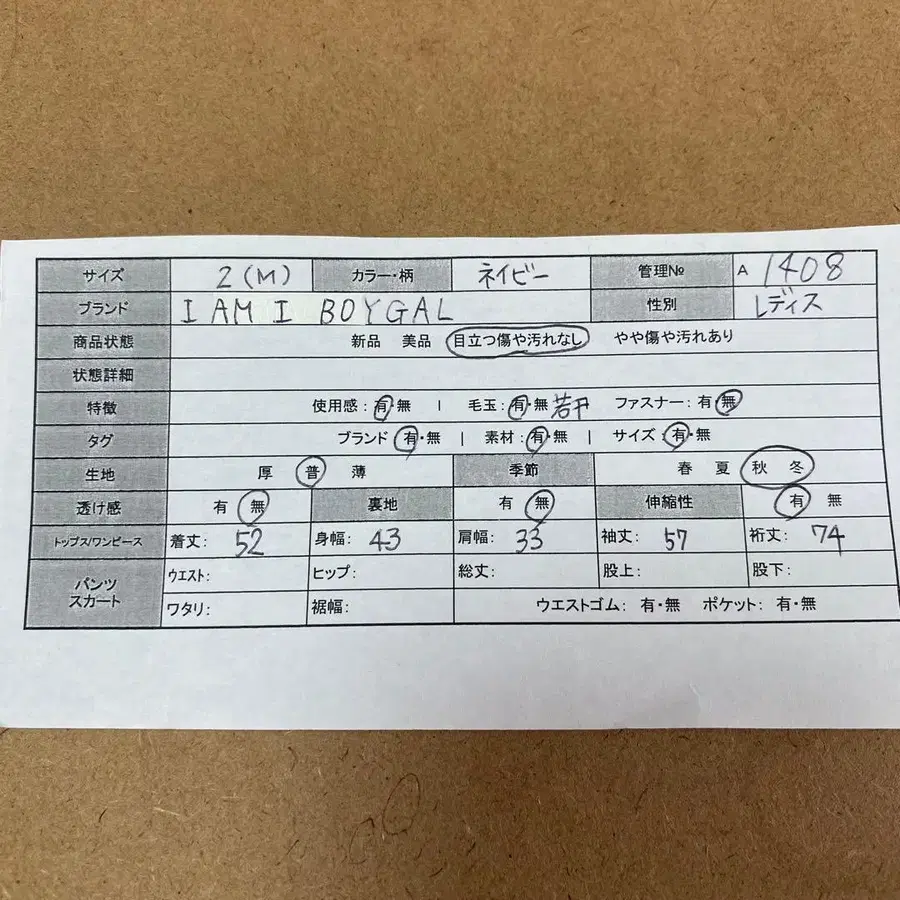 サイズ 2(M) カラー・柄 ネイビー 管理№ A 1408
ブランド I AM I BOYGAL 性別 レディス
商品状態 新品 美品 目立つ傷や汚れなし やや傷や汚れあり
状態詳細
特徴 使用感:有・無 | 毛玉:有・無 若干 ファスナー:有・無
タグ ブランド 有・無 | 素材:有・無 | サイズ 有・無
生地 厚 普 薄 季節 春 夏 秋 冬
透け感 有 無 裏地 有 無 伸縮性 有 無
トップス/ワンピース 着丈: 52 身幅: 43 肩幅: 33 袖丈: 57 裄丈: 74
パンツ スカート ウエスト: ヒップ: 総丈: 股上: 股下:
ワタリ: 裾幅: ウエストゴム: 有・無 ポケット: 有・無